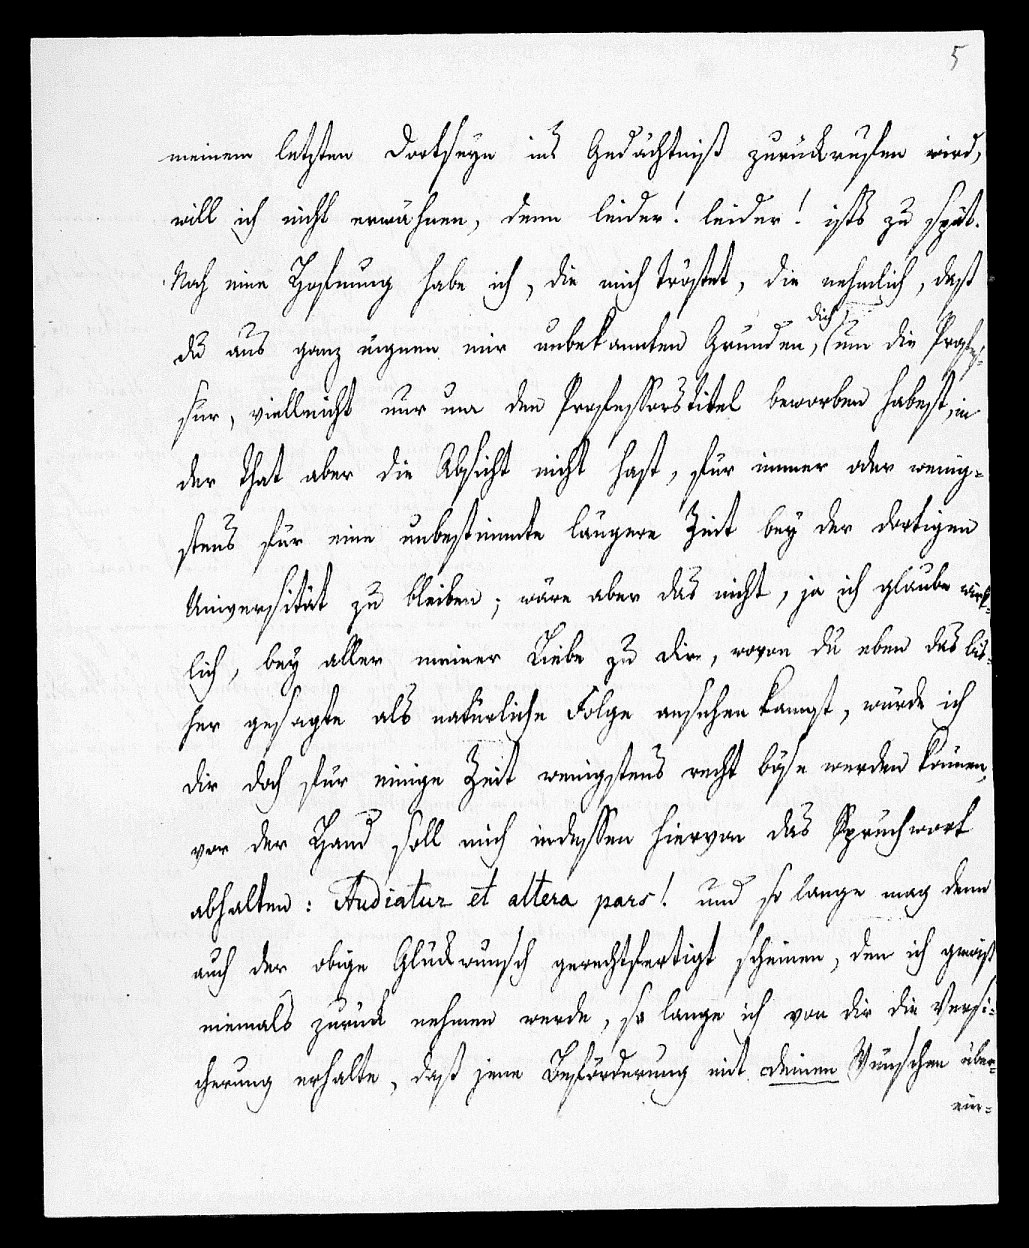 5
meinem letzten Dortseyn ins Gedächtniß zurückrufen wird,
will ich nicht erwähnen, denn leider! leider! ists zu spät.
Noch eine Hofnung habe ich, die mich tröstet, die nehmlich, daß
du aus ganz eignen mir unbekannten Grunden, (dich um die Profes-
sur, vielleicht nur um den Professorstitel beworben habest, in
der That aber die Absicht nicht hast, für immer oder wenig-
stens für eine unbestimmte längere Zeit bey der dortigen
Universität zu bleiben; wäre aber das nicht, ja ich glaube wirk-
lich, bey aller meiner Liebe zu dir, wovon du eben das bis-
her gesagte als natürliche Folge ansehen kannst, würde ich
dir doch für einige Zeit wenigstens recht böse werden können,
vor der Hand soll mich indessen hiervon das Spruchwort
abhalten: Audiatur et altera pars! und so lange mag denn
auch der obige Glückwunsch gerechtfertigt scheinen, den ich gewiß
niemals zurück nehmen werde, so lange ich von dir die Versi-
cherung erhalte, daß jene Beförderung mit deinen Wünschen über-
ein-